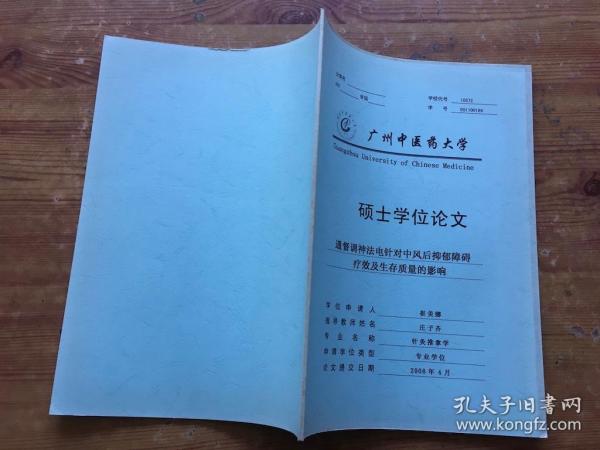 学校代号 10572
学 号
广州中医药大学
Guangzhou University of Chinese Medicine
硕士学位论文
通督调神法电针对中风后抑郁障碍
疗效及生存质量的影响
学位申请人 崔美娜
指导教师姓名 庄子齐
专业名称 针灸推拿学
申请学位类型 专业学位
论文提交日期 2008年4月
孔夫子旧书网
www.kongfz.com